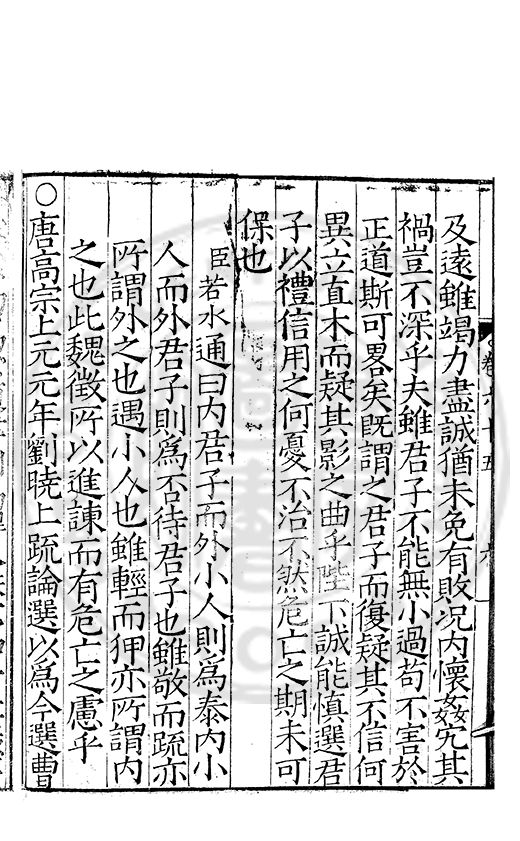 及遠雖竭力盡誠猶未免有敗况内懷姦宄其
禍豈不深乎夫雖君子不能無小過苟不害於
正道斯可畧矣既謂之君子而復疑其不信何
異立直木而疑其影之曲乎陛下誠能慎選君
子以禮信用之何憂不治不然危亡之期未可
保也
臣若水通曰内君子而外小人則爲泰内小
人而外君子則爲否待君子也雖敬而疏亦
所謂外之也遇小人也雖輕而狎亦所謂内
之也此魏徵所以進諫而有危亡之慮乎
○唐高宗上元元年劉曉上疏論選以爲今選曹
卷六十五